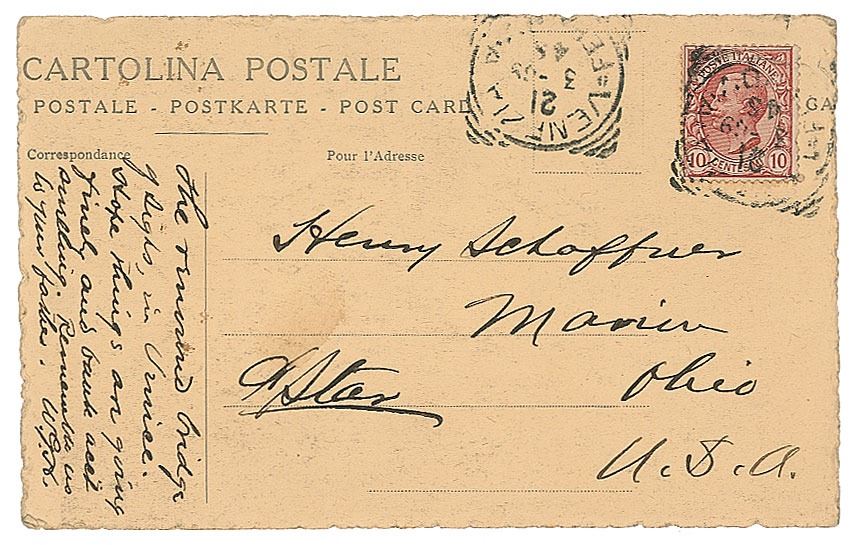 CARTOLINA POSTALE
POSTALE - POSTKARTE - POST CARD
GA
Correspondance
Pour l'Adresse
VENEZIA
21
3
POSTE ITALIANE
10 CENTESIMI 10
The renowned bridge
of Sighs, in Venice.
Hope things are going
finely and bank acct
smiling. Remember us
to your father. W.G.H.
Henry Schaffner
Marion
Star
Ohio
U.S.A.